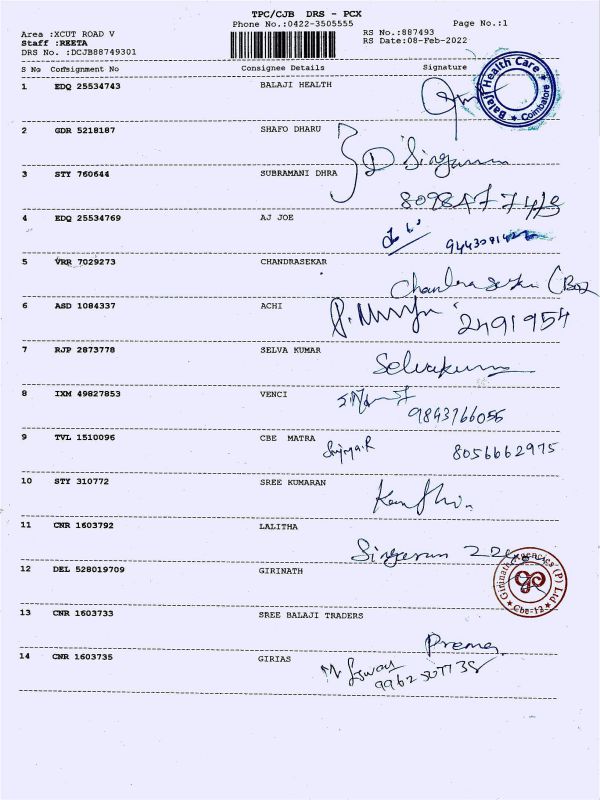 TPC/CJB DRS - PCX
Phone No.:0422-3505555 Page No.:1
Area :XCUT ROAD V RS No.:887493
Staff :REETA RS Date:08-Feb-2022
DRS No. :DCJB88749301
S No Consignment No Consignee Details Signature
1 EDQ 25534743 BALAJI HEALTH
Balaji Health Care Coimbatore
2 GDR 5218187 SHAFO DHARU
3 STY 760644 SUBRAMANI DHRA
4 EDQ 25534769 AJ JOE
5 VRR 7029273 CHANDRASEKAR
6 ASD 1084337 ACHI
2491954
7 RJP 2873778 SELVA KUMAR
Selvakumar
8 IXM 49827853 VENCI
9843766056
9 TVL 1510096 CBE MATRA
8056662975
10 STY 310772 SREE KUMARAN
11 CNR 1603792 LALITHA
12 DEL 528019709 GIRINATH
Girinath Agencies (P) Ltd Cbe-12
13 CNR 1603733 SREE BALAJI TRADERS
Prema
14 CNR 1603735 GIRIAS